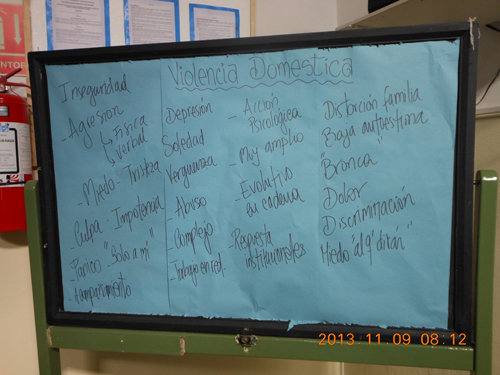 Violencia Domestica
Inseguridad
- Agresion
Física
Verbal
- Miedo - Tristeza
Culpa - Impotencia
- Panico "Solo a mi"
- Acompañamiento
Depresion
Soledad
Verguenza
- Abuso
- Complejo
- Trabajo en red.
- Acción
Psicologica
- Muy amplio
- Evolutivo
en cadena
Respuesta
institucionales
Distorción familia
Baja autoestima
"Bronca"
Dolor
Discriminación
Miedo "al q' dirán"
2013.11.09 08:12